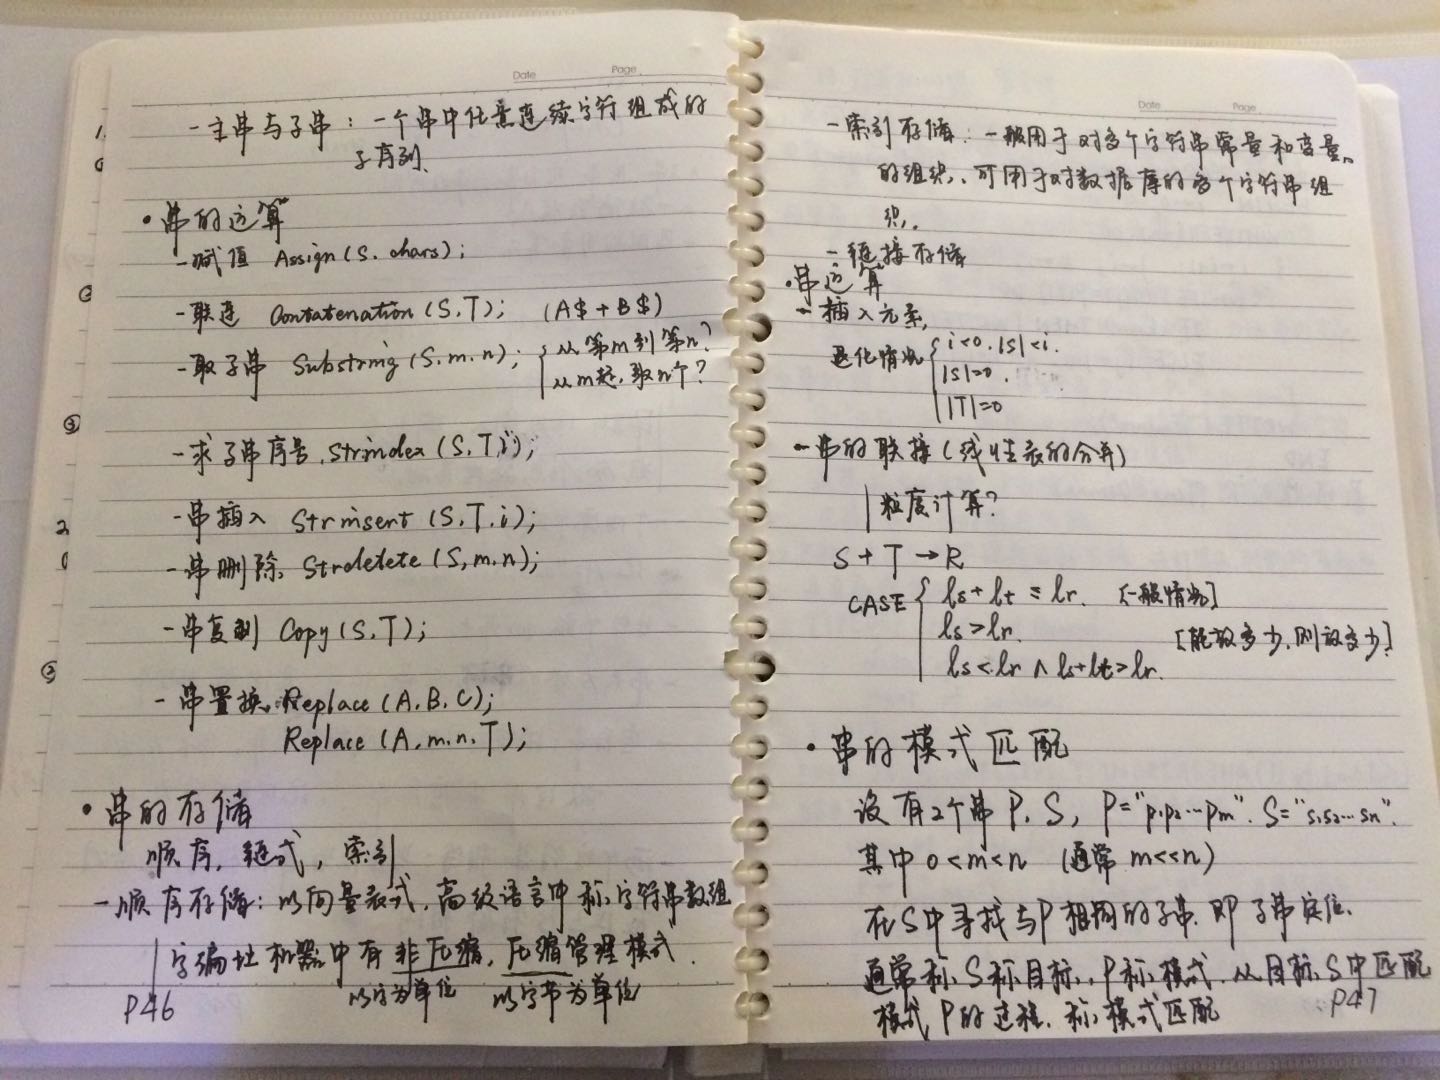 Date Page
- 主串与子串：一个串中任意连续字符组成的
子序列、
• 串的运算
- 赋值 Assign(S, chars);
- 联连 Contatenation (S,T); (A$+B$)
- 取子串 Substring (S,m,n); { 从第m到第n?
从m起,取n个?
- 求子串序号 Strindex (S,T,i);
- 串插入 Strinsert (S,T,i);
- 串删除 Strdelete (S,m,n);
- 串复制 Copy(S,T);
- 串置换 Replace (A,B,C);
Replace (A,m,n,T);
• 串的存储
顺序, 链式, 索引
- 顺序存储: 以向量表式, 高级语言中称字符串数组
字编址机器中有非压缩, 压缩管理模式.
以字为单位 以字节为单位
P46
Date Page
- 索引存储: 一般用于对多个字符串常量和变量
的组织, 可用于对数据库的多个字符串组
织,
- 链接存储
• 串运算
- 插入元素,
退化情况 { i<0, |S|<i.
|S|=0.
|T|=0
- 串的联接(线性表的合并)
粒度计算?
S+T→R
CASE { ls+lt ≤ lr. [一般情况]
ls>lr. [能放多少,则放多少]
ls<lr ∧ ls+lt>lr.
• 串的模式匹配
设有2个串 P, S, P="p1p2…pm". S="s1s2…sn".
其中 0<m<n (通常 m<<n)
在S中寻找与P相同的子串. 即子串定位.
通常称 S称目标, P称模式. 从目标S中匹配
模式P的过程, 称模式匹配
P47